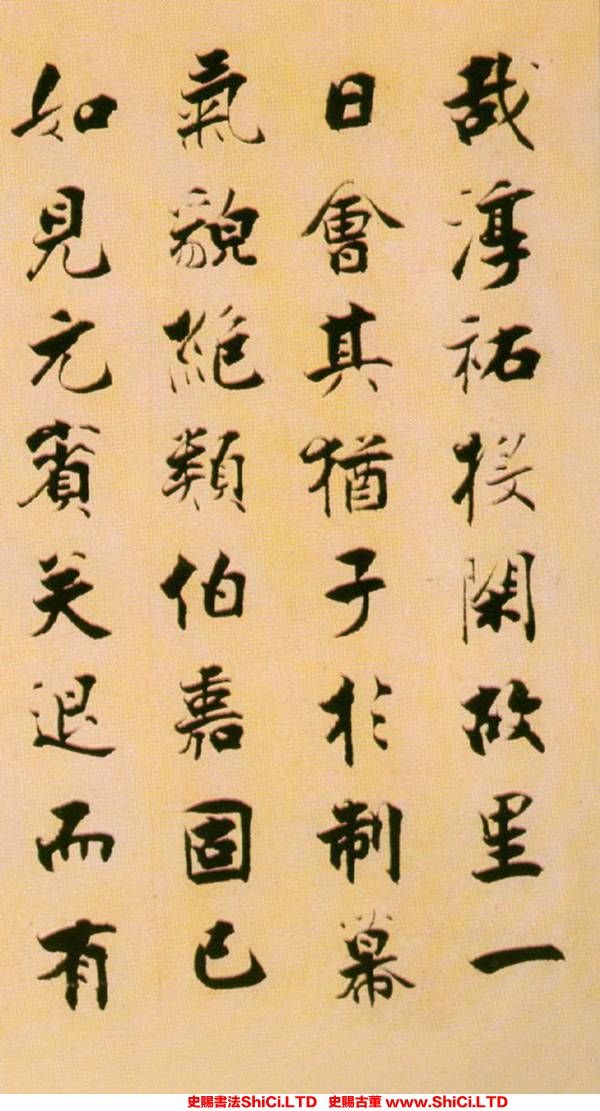 哉淳祐授閑故里一
日會其猶子於制幕
氣貌絶類伯嘉固已
如見元賓矣退而有
史賜書法ShiCi.LTD 史賜古董 www.ShiCi.LTD